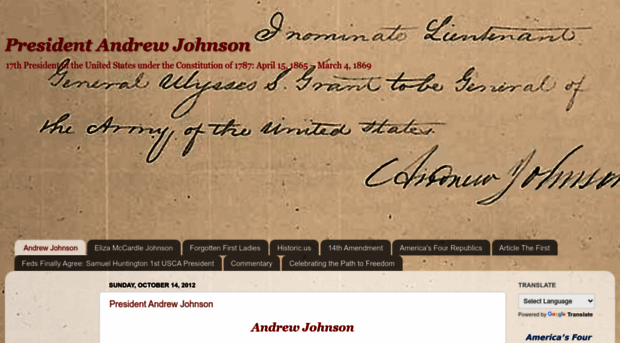 I nominate Lieutenant
President Andrew Johnson
17th President of the United States under the Constitution of 1787: April 15, 1865 – March 4, 1869
General Ulysses S. Grant to be General of
the Army of the United States.
Andrew Johnson
Andrew Johnson
Eliza McCardle Johnson
Forgotten First Ladies
Historic.us
14th Amendment
America's Four Republics
Article The First
Feds Finally Agree: Samuel Huntington 1st USCA President
Commentary
Celebrating the Path to Freedom
SUNDAY, OCTOBER 14, 2012
President Andrew Johnson
Andrew Johnson
TRANSLATE
Select Language
Powered by Google Translate
America's Four